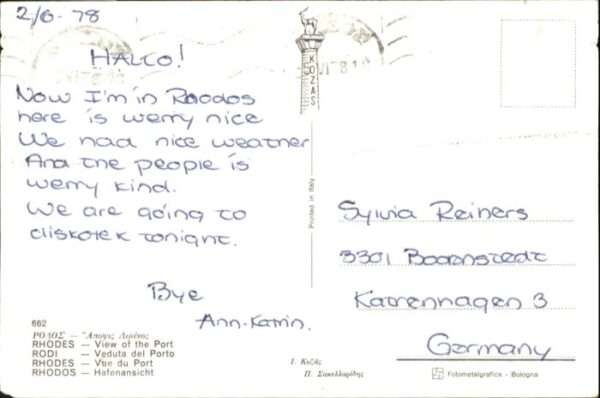 2/6-78
HALLO!
Now I'm in Rhodos
here is werry nice
We had nice weather
And the people is
werry kind.
We are going to
diskotek tonight.
Bye
Ann-Katrin.
662
ΡΟΔΟΣ — Ἄποψις Λιμένος
RHODES — View of the Port
RODI — Veduta del Porto
RHODES — Vue du Port
RHODOS — Hafenansicht
KOZAS
Printed in Italy
Sylvia Reiners
3301 Bornstedt
Katrenhagen 3
Germany
Γ. Κοζᾶς
Π. Σακελλαρίδης
Fotometalgrafica - Bologna